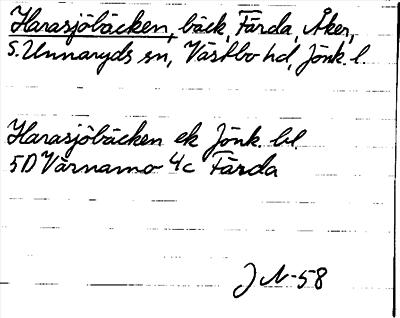 Harasjöbäcken, bäck, Färda, Åker,
S. Unnaryds sn, Västbo hd, Jönk. l.
Harasjöbäcken ek Jönk. bl.
5D Värnamo 4c Färda
JN-58